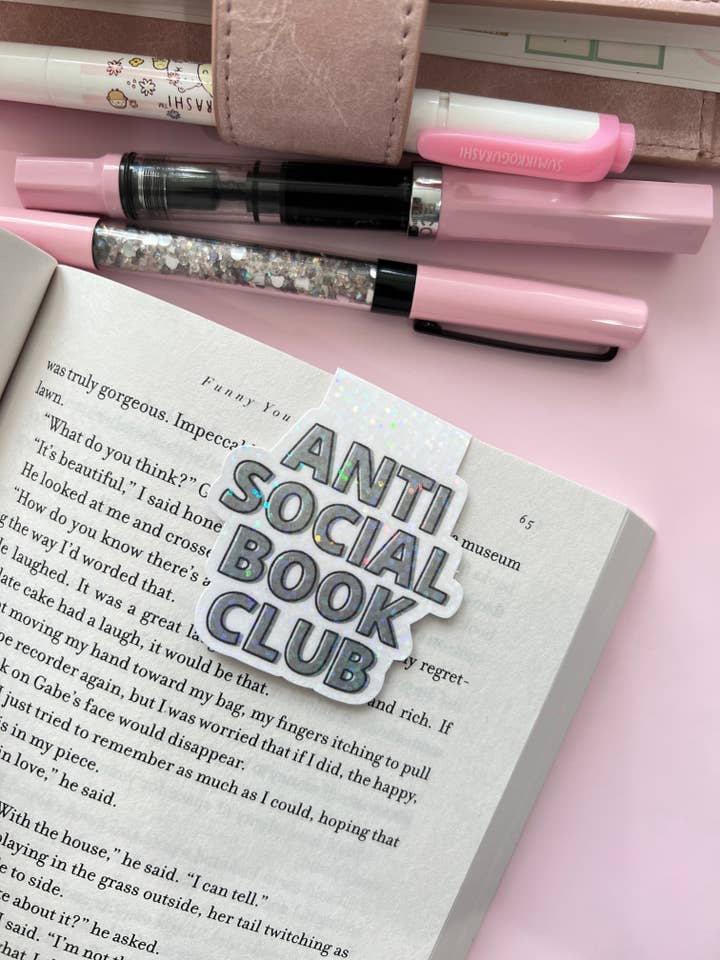 SUMIKKOGURASHI
Funny You
65
was truly gorgeous. Impecca
a museum
lawn.
“What do you think?”
“It’s beautiful,” I said hone
He looked at me and crosse
“How do you know there’s a
g the way I’d worded that.
e laughed. It was a great la
ly regret-
late cake had a laugh, it would be that.
and rich. If
t moving my hand toward my bag, my fingers itching to pull
pe recorder again, but I was worried that if I did, the happy,
k on Gabe’s face would disappear.
I just tried to remember as much as I could, hoping that
is in my piece.
in love,” he said.
With the house,” he said. “I can tell.”
playing in the grass outside, her tail twitching as
e to side.
e about it?” he asked.
I said. “I’m not th
that I
ANTI
SOCIAL
BOOK
CLUB